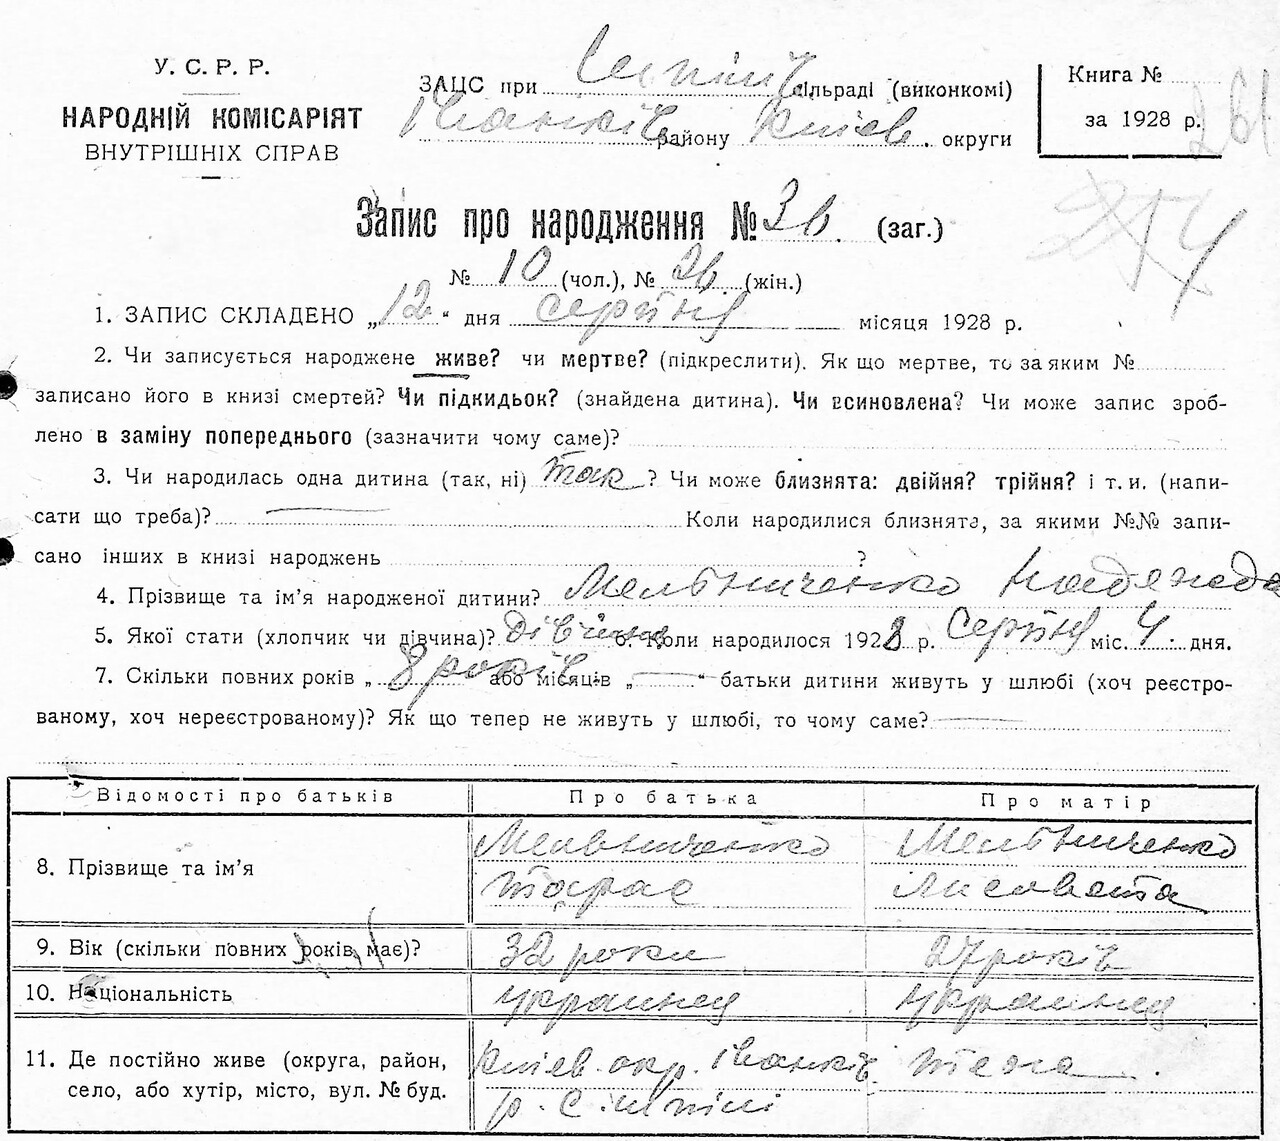 У. С. Р. Р.
НАРОДНІЙ КОМІСАРІЯТ
ВНУТРІШНІХ СПРАВ
ЗАЦС при сільраді (виконкомі)
Іванків району Київ. округи
Книга №
за 1928 р.
261
Запис про народження № 36. (заг.)
№ 10 (чол.), № 26 (жін.)
1. ЗАПИС СКЛАДЕНО „12“ дня серпня місяця 1928 р.
2. Чи записується народжене живе? чи мертве? (підкреслити). Як що мертве, то за яким №
записано його в книзі смертей? Чи підкидьок? (знайдена дитина). Чи всиновлена? Чи може запис зроб-
лено в заміну попереднього (зазначити чому саме)?
3. Чи народилась одна дитина (так, ні) так? Чи може близнята: двійня? трійня? і т. и. (напи-
сати що треба)? Коли народилися близнята, за якими №№ запи-
сано інших в книзі народжень ?
4. Прізвище та ім’я народженої дитини? Мельниченко Надежда
5. Якої стати (хлопчик чи дівчина)? дівчина 6. Коли народилося 1928 р. серпня міс. 4 дня.
7. Скільки повних років „8 років або місяців „ “ батьки дитини живуть у шлюбі (хоч реєстро-
ваному, хоч нереєстрованому)? Як що тепер не живуть у шлюбі, то чому саме?
Відомості про батьків Про батька Про матір
8. Прізвище та ім’я Мельниченко Тарас Мельниченко Лисавета
9. Вік (скільки повних років має)? 32 роки 27 років
10. Національність украинец украинец
11. Де постійно живе (округа, район, Київ. окр. Іванків теж
село, або хутір, місто, вул. № буд. р. с.